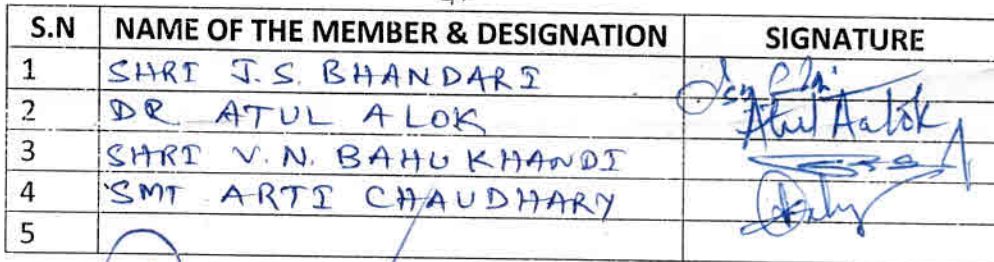 S.N NAME OF THE MEMBER & DESIGNATION SIGNATURE
1 SHRI J.S. BHANDARI
2 DR ATUL ALOK Atul Aalok
3 SHRI V.N. BAHUKHANDI
4 SMT ARTI CHAUDHARY
5